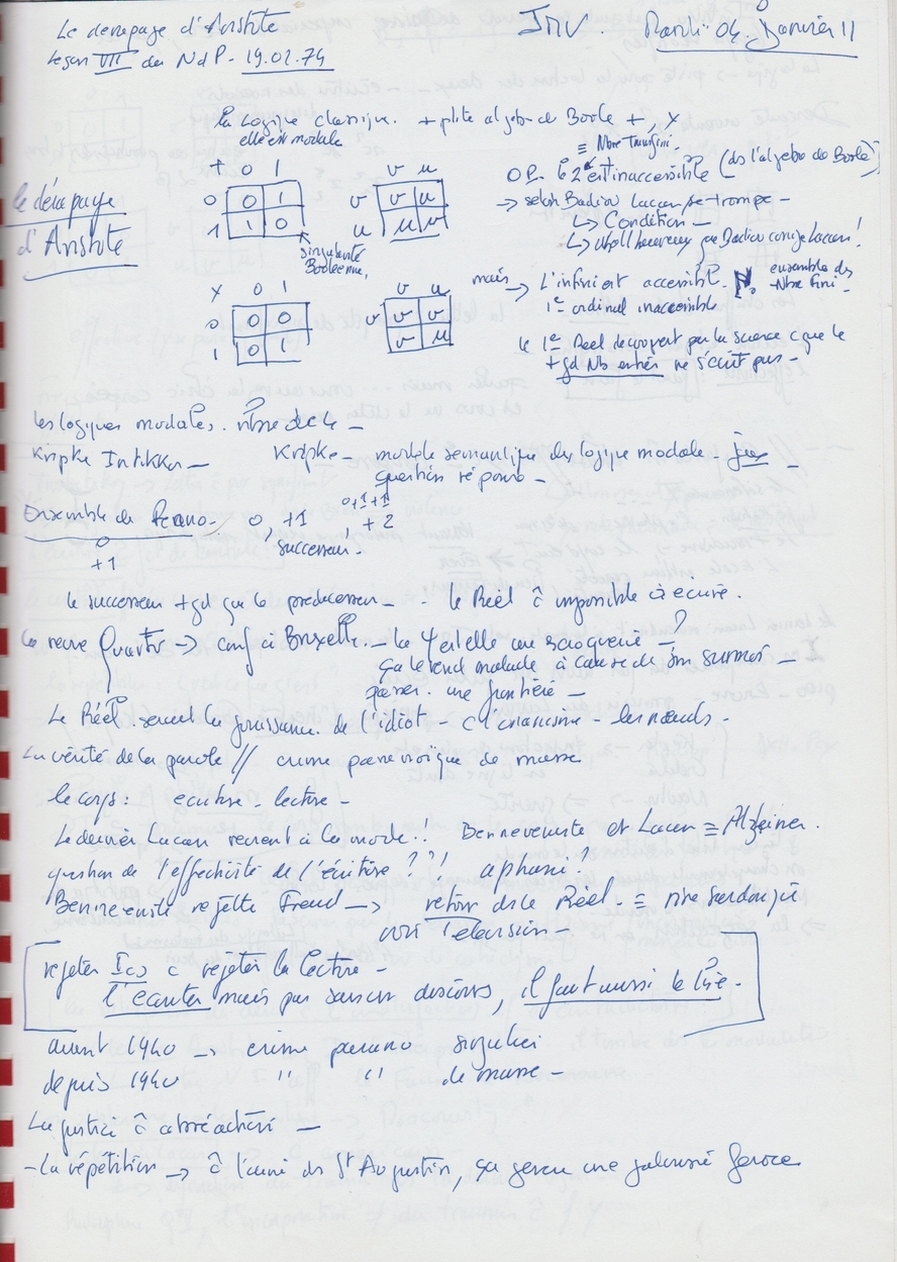 Le dérapage d'Aristote
JMV. Mardi 04. Janvier 11
Leçon VII des NdP - 19.02.74
La Logique classique. + petite algèbre de Boole +, x
elle est modale
≡ Nbre Transfini.
+ 0 1
0 0 1
1 1 0
v u
v v u
u u u
singularité
Booléenne,
le dérapage
d'Aristote
OR. le 2 est inaccessible (ds l'algèbre de Boole)
→ selon Badiou Lacan se trompe -
↳ Condition -
que Badiou corrige Lacan!
x 0 1
0 0 0
1 0 1
v u
v v v
v u
mais → L'infini est accessible. ensemble des
Nbre Fini -
1e ordinal inaccessible
le 1e Réel découvert par la science c que le
+ gd Nb entier ne s'écrit pas -
Les logiques modales.
Kripke Intikka - Kripke - modèle sémantique des logique modale - jeux -
question réponse -
Ensemble de Peano - 0, +1, +2
0+1+1
0 successeur.
+1
le successeur + gd que le prédécesseur - le Réel c impossible à écrire.
La revue Quarto → conf à Bruxelles - la Ψ est elle une escroquerie - ?
ça le rend malade à cause de son surmoi -
passer. une frontière -
Le Réel. serait la jouissance de l'idiot - c l'onanisme - les nœuds -
La vérité de la parole // crime paranoïque de masse
le corps: écriture - lecture -
Le dernier Lacan revient à la mode!! Benneveniste et Lacan ≡ Alzeimer.
question de l'effectivité de l'écriture ??! aphasie?
Benneveniste rejette Freud → retour ds le Réel. ≡
voir Télévision -
rejeter Ics c rejeter la lecture -
l'écouter mais pas sans un discours, il faut aussi le lire -
avant 1940 → crime parano singulier
depuis 1940 " " de masse -
La justice c abréaction -
- La répétition → c l'aimé de St Augustin, une jalousie féroce